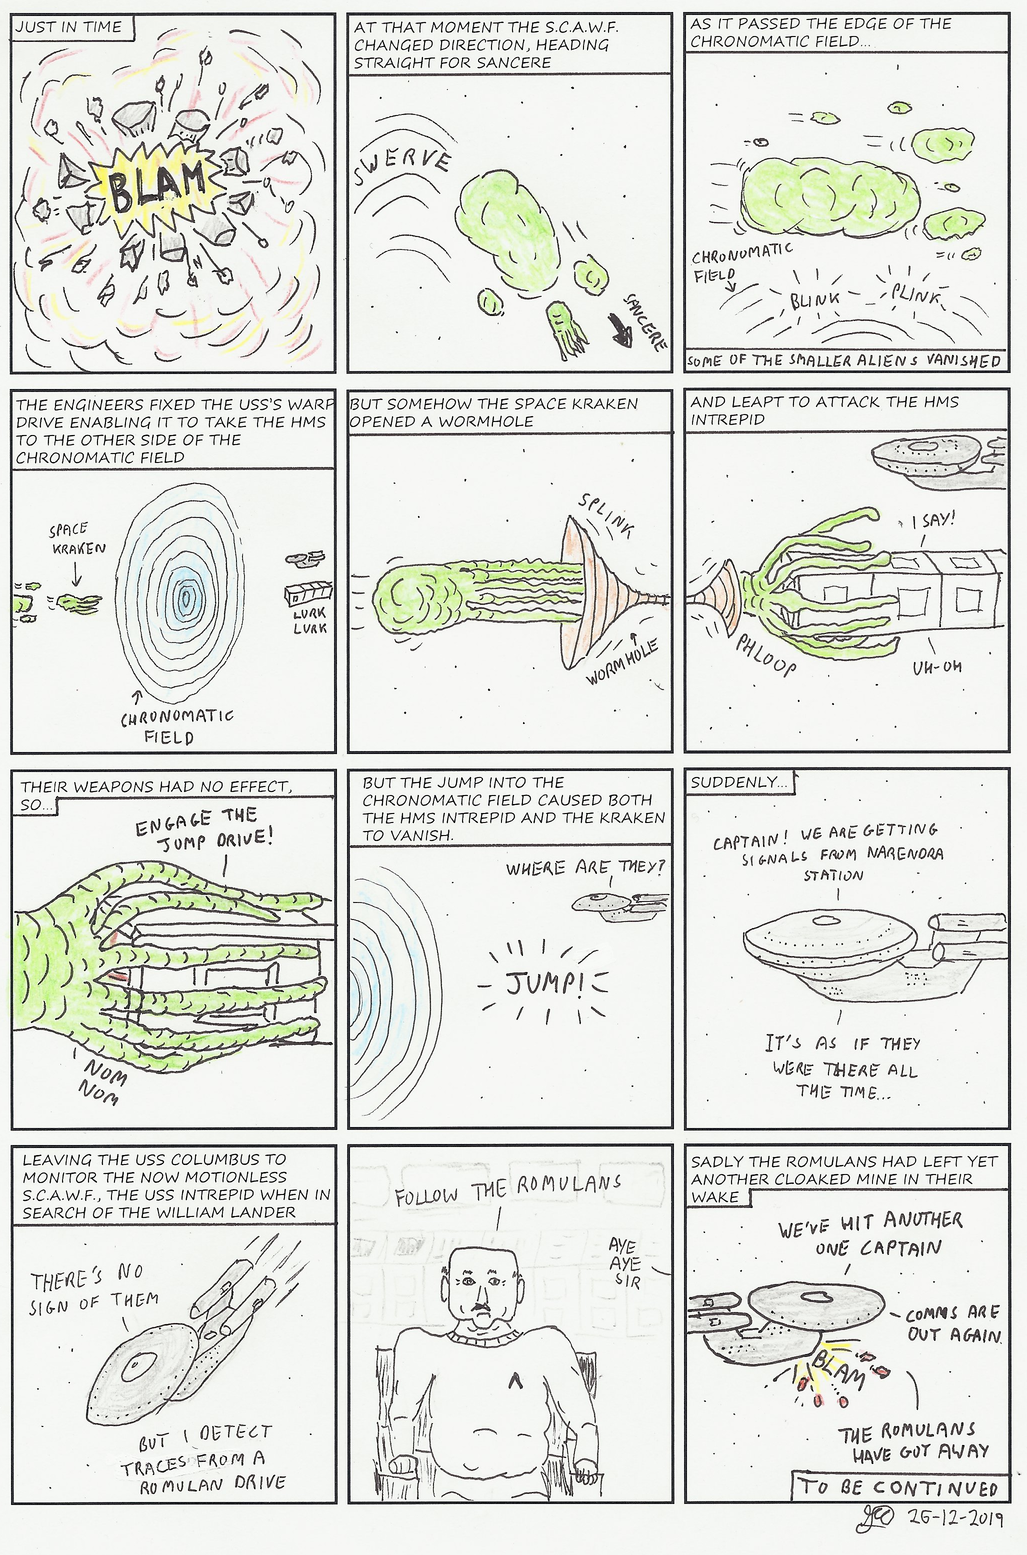 JUST IN TIME
BLAM
AT THAT MOMENT THE S.C.A.W.F.
CHANGED DIRECTION, HEADING
STRAIGHT FOR SANCERE
SWERVE
SANCERE
AS IT PASSED THE EDGE OF THE
CHRONOMATIC FIELD...
CHRONOMATIC
FIELD
BLINK
PLINK
SOME OF THE SMALLER ALIENS VANISHED
THE ENGINEERS FIXED THE USS'S WARP
DRIVE ENABLING IT TO TAKE THE HMS
TO THE OTHER SIDE OF THE
CHRONOMATIC FIELD
SPACE
KRAKEN
LURK
LURK
CHRONOMATIC
FIELD
BUT SOMEHOW THE SPACE KRAKEN
OPENED A WORMHOLE
SPLINK
WORMHOLE
AND LEAPT TO ATTACK THE HMS
INTREPID
I SAY!
PHLOOP
UH-OH
THEIR WEAPONS HAD NO EFFECT,
SO...
ENGAGE THE
JUMP DRIVE!
NOM
NOM
BUT THE JUMP INTO THE
CHRONOMATIC FIELD CAUSED BOTH
THE HMS INTREPID AND THE KRAKEN
TO VANISH.
WHERE ARE THEY?
JUMP!
SUDDENLY...
CAPTAIN! WE ARE GETTING
SIGNALS FROM NARENDRA
STATION
IT'S AS IF THEY
WERE THERE ALL
THE TIME...
LEAVING THE USS COLUMBUS TO
MONITOR THE NOW MOTIONLESS
S.C.A.W.F., THE USS INTREPID WHEN IN
SEARCH OF THE WILLIAM LANDER
THERE'S NO
SIGN OF THEM
BUT I DETECT
TRACES FROM A
ROMULAN DRIVE
FOLLOW THE ROMULANS
AYE
AYE
SIR
SADLY THE ROMULANS HAD LEFT YET
ANOTHER CLOAKED MINE IN THEIR
WAKE
WE'VE HIT ANOTHER
ONE CAPTAIN
COMMS ARE
OUT AGAIN.
BLAM
THE ROMULANS
HAVE GOT AWAY
TO BE CONTINUED
26-12-2019